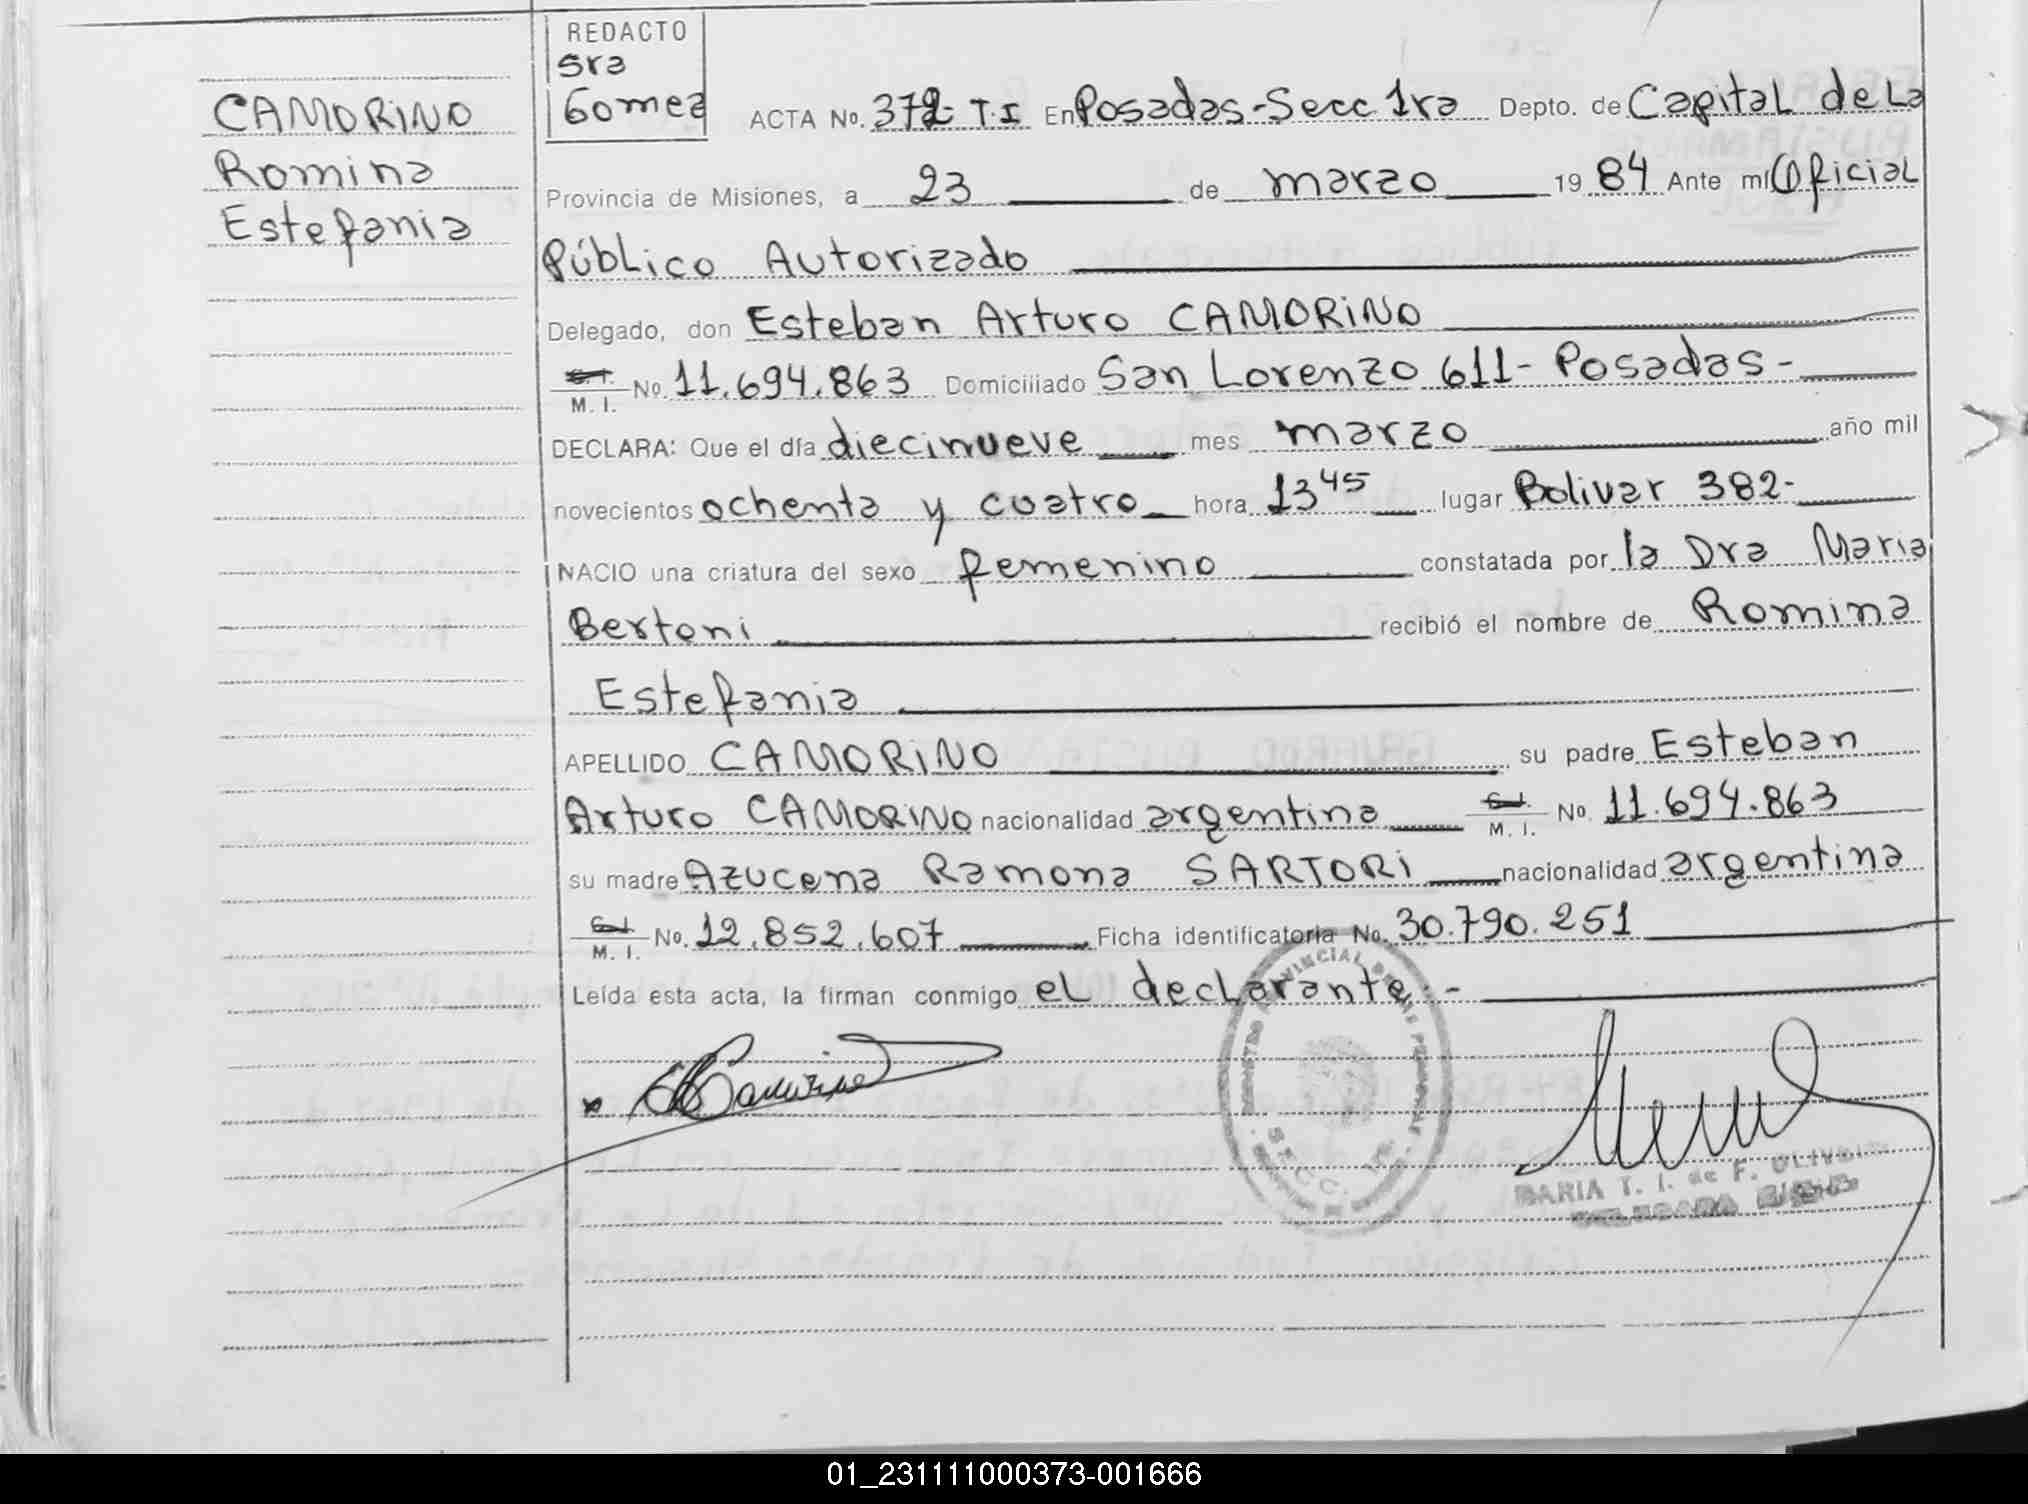 REDACTO
Sra
Gomez
CAMORINO
Romina
Estefania
ACTA No. 372- T.I En Posadas-Secc 1ra Depto. de Capital de La
Provincia de Misiones, a 23 de marzo 19 84 Ante mí Oficial
Público Autorizado
Delegado, don Esteban Arturo CAMORINO
C.I. M.I. No. 11.694.863 Domiciliado San Lorenzo 611- Posadas-
DECLARA: Que el día diecinueve mes marzo año mil
novecientos ochenta y cuatro hora 13 45 lugar Bolivar 382-
NACIO una criatura del sexo femenino constatada por la Dra Maria
Bertoni recibió el nombre de Romina
Estefania
APELLIDO CAMORINO su padre Esteban
Arturo CAMORINO nacionalidad argentina C.I. M.I. No. 11.694.863
su madre Azucena Ramona SARTORI nacionalidad argentina
C.I. M.I. No. 12.852.607 Ficha identificatoria No. 30.790.251
Leída esta acta, la firman conmigo el declarante.-
REGISTRO PROVINCIAL DE LAS PERSONAS
SECC.
MARIA T. I. de F. OLIVEIRA
DELEGADA
01_231111000373-001666